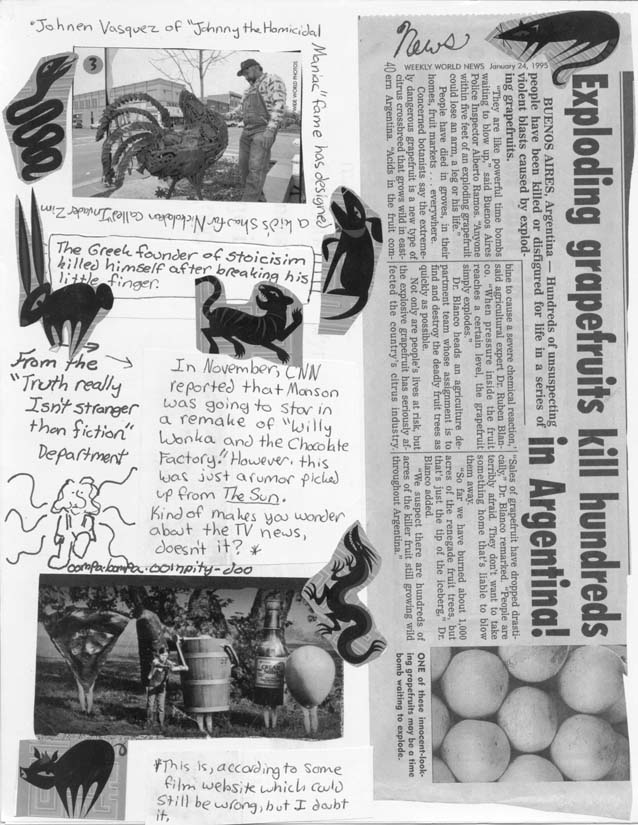 *Johnen Vasquez of "Johnny the Homicidal
Maniac" fame has designed
a kid's show for Nickolodian called "Invader Zim
3
The Greek founder of stoicisim
killed himself after breaking his
little finger.
From the
"Truth really
Isn't stranger
than fiction"
Department
In November, CNN
reported that Manson
was going to star in
a remake of "Willy
Wonka and the Chocolate
Factory." However, this
was just a rumor picked
up from The Sun.
Kind of makes you wonder
about the TV news,
doesn't it? *
oompa·loompa·doompity-doo
*This is, according to some
film website which could
still be wrong, but I doubt
it.
News
WEEKLY WORLD NEWS January 24, 1995
40
Exploding grapefruits kill hundreds
in Argentina!
BUENOS AIRES, Argentina — Hundreds of unsuspecting
people have been killed or disfigured for life in a series of
violent blasts caused by explod-
ing grapefruits.
"They are like powerful time bombs
waiting to blow up," said Buenos Aires
Police Inspector Alberto Ramos. "Anyone
within five feet of an exploding grapefruit
could lose an arm, a leg or his life."
People have died in groves, in their
homes, fruit markets . . . everywhere.
Concerned botanists say the extreme-
ly dangerous grapefruit is a new type of
citrus crossbreed that grows wild in east-
ern Argentina. "Acids in the fruit com-
bine to cause a severe chemical reaction,"
said agricultural expert Dr. Ruben Blan-
co. "When pressure inside the fruit
reaches a certain level, the grapefruit
simply explodes."
Dr. Blanco heads an agriculture de-
partment team whose assignment is to
find and destroy the deadly fruit trees as
quickly as possible.
Not only are people's lives at risk, but
the explosive grapefruit has seriously af-
fected the country's citrus industry.
"Sales of grapefruit have dropped drasti-
cally," Dr. Blanco remarked. "People are
terribly afraid. They don't want to take
something home that's liable to blow
them away.
"So far we have burned about 1,000
acres of the renegade fruit trees, but
that's just the tip of the iceberg," Dr.
Blanco added.
"We suspect there are hundreds of
acres of the killer fruit still growing wild
throughout Argentina."
ONE of these innocent-look-
ing grapefruits may be a time
bomb waiting to explode.
CREAM